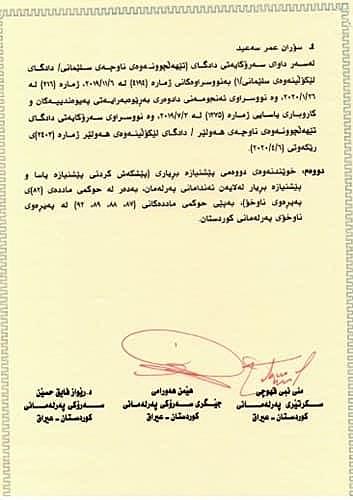 ٤. سۆران عمر سەعید
لەسەر داوای سەرۆکایەتی دادگای (تێهەڵچوونەوەی ناوچەی سلێمانی/ دادگای
لێکۆڵینەوەی سلێمانی/١) بەنووسراوەکانی ژمارە (٤١٩٤) لە ٢٠١٩/١١/٦، ژمارە (٢١٦) لە
٢٠٢٠/١/٢٦، وە نووسراوی ئەنجومەنی دادوەری بەڕێوەبەرایەتی پەیوەندییەکان و
کاروباری یاسایی ژمارە (١٢٧٥) لە ٢٠١٩/٧/٢، وە نووسراوی سەرۆکایەتی دادگای
تێهەڵچوونەوەی ناوچەی هەولێر / دادگای لێکۆڵینەوەی هەولێر ژمارە (٢٤٠٣)ی
ڕێکەوتی (٢٠٢٠/٤/٦).
دووەم: خوێندنەوەی دووەمی پێشنیازە بڕیاری (پێشکەش کردنی پێشنیازە یاسا و
پێشنیازە بڕیار لەلایەن ئەندامانی پەرلەمان، بەدەر لە حوکمی ماددەی (٨٢)ی
پەیڕەوی ناوخۆ)، بەپێی حوکمی ماددەکانی (٨٧، ٨٨، ٨٩، ٩٢) لە پەیڕەوی
ناوخۆی پەرلەمانی کوردستان.
منی نبی قهوچی
سکرتێری پەرلەمانی
کوردستان – عیراق
هێمن هەورامی
جێگری سەرۆکی پەرلەمانی
کوردستان – عیراق
د.رێواز فایق حسێن
سەرۆکی پەرلەمانی
کوردستان – عیراق